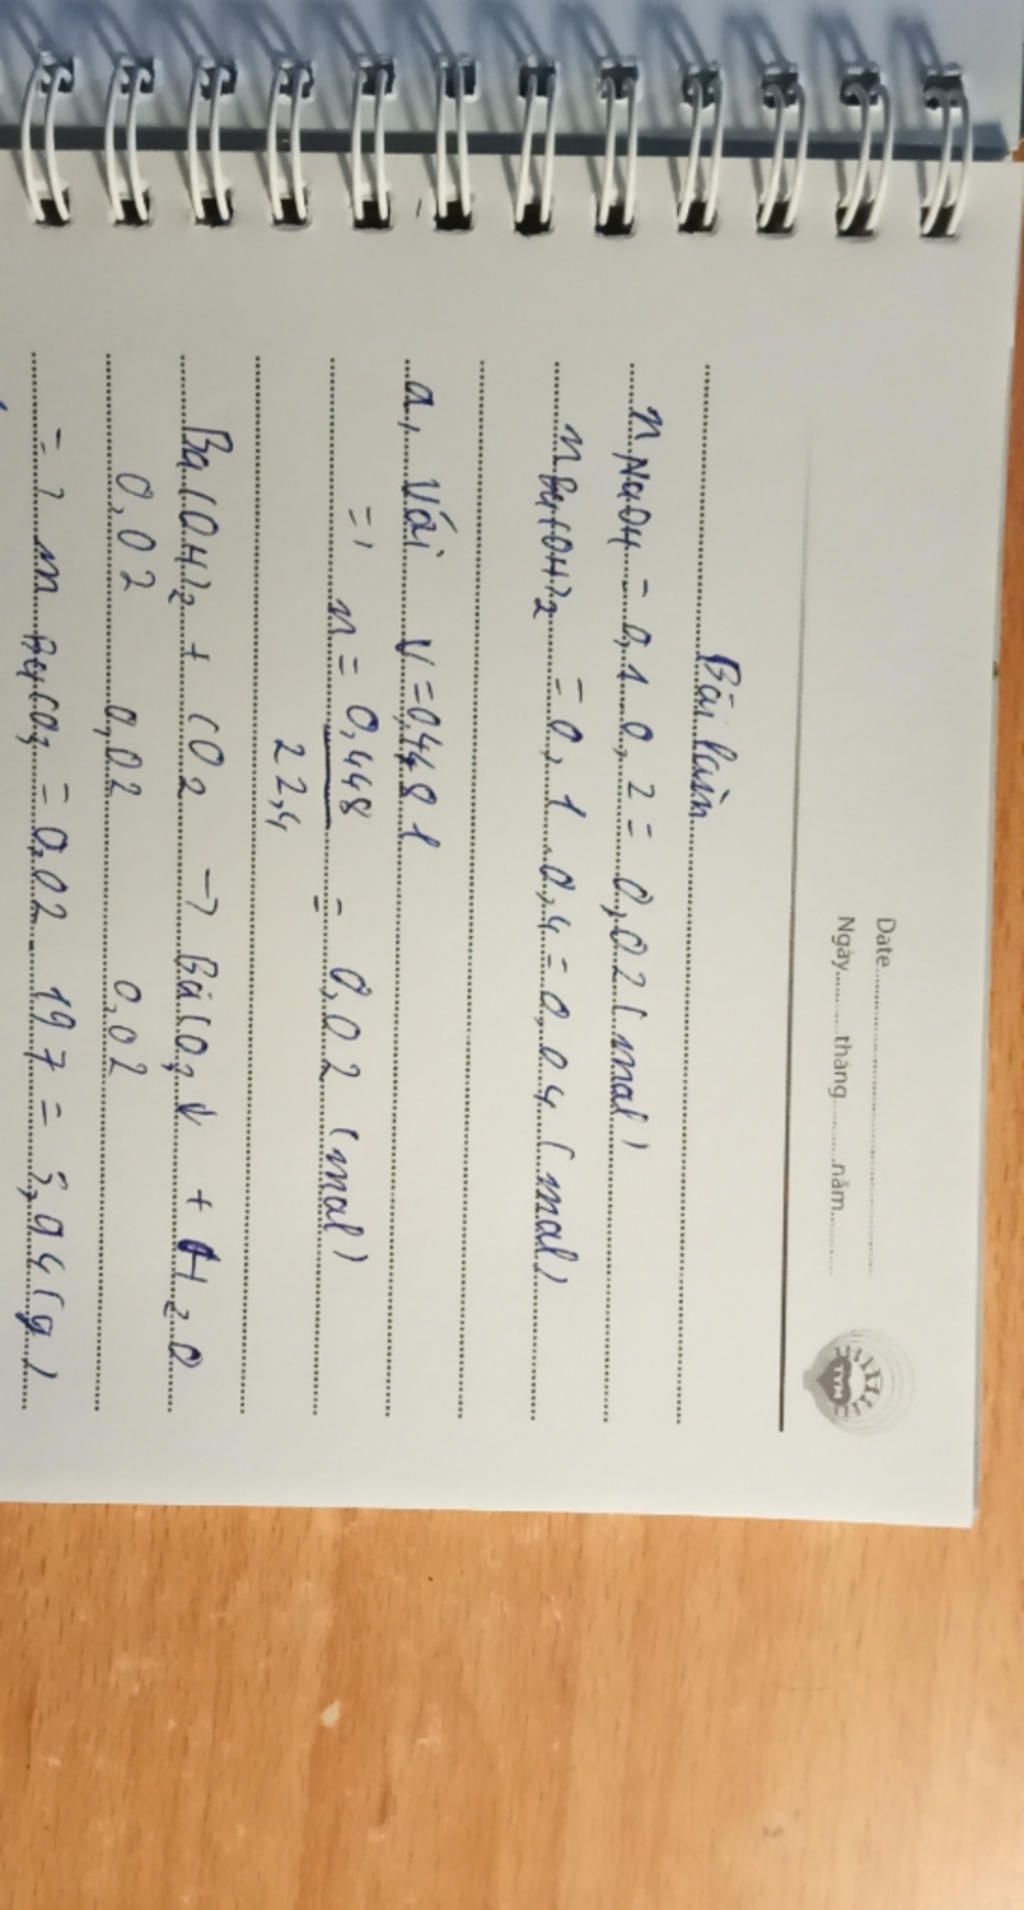 Date
Ngày......tháng......năm......
TYM
Bài làm
n NaOH = 0,1 . 0,2 = 0,02 (mol)
n Ba(OH)2 = 0,1 . 0,4 = 0,04 (mol)
a, Với V = 0,448 l
=> n = 0,448 / 22,4 = 0,02 (mol)
Ba(OH)2 + CO2 -> BaCO3 ↓ + H2O
0,02 0,02 0,02
=> m BaCO3 = 0,02 . 197 = 3,94 (g)